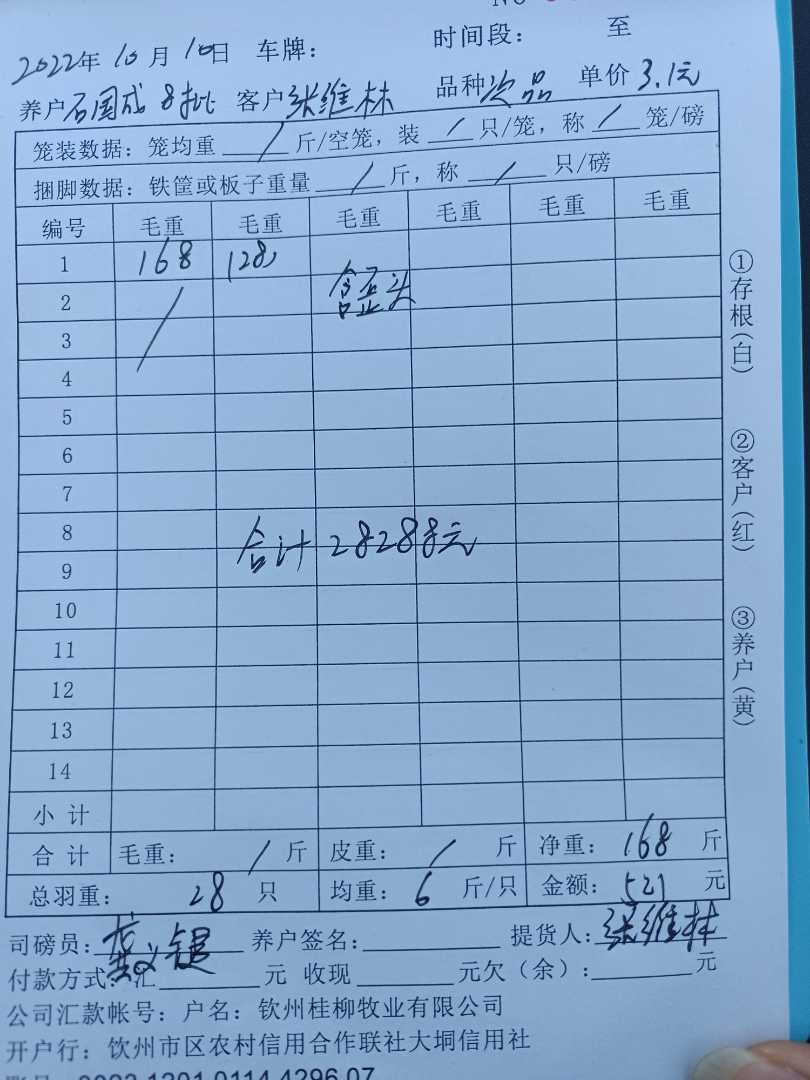 2022年10月10日 车牌: 时间段: 至
养户石国成 8批 客户张维林 品种次品 单价3.1元
笼装数据: 笼均重 / 斤/空笼, 装 / 只/笼, 称 / 笼/磅
捆脚数据: 铁筐或板子重量 / 斤, 称 / 只/磅
编号 毛重 毛重 毛重 毛重 毛重 毛重
1 168 128
2 / 含歪头
3
4
5
6
7
8
合计 28288元
9
10
11
12
13
14
小 计
合 计 毛重: / 斤 皮重: / 斤 净重: 168 斤
总羽重: 28 只 均重: 6 斤/只 金额: 521 元
司磅员: 键 养户签名: 提货人: 张维林
付款方式: 汇 元 收现 元欠(余): 元
公司汇款帐号: 户名: 钦州桂柳牧业有限公司
开户行: 钦州市区农村信用合作联社大垌信用社
①存根(白) ②客户(红) ③养户(黄)